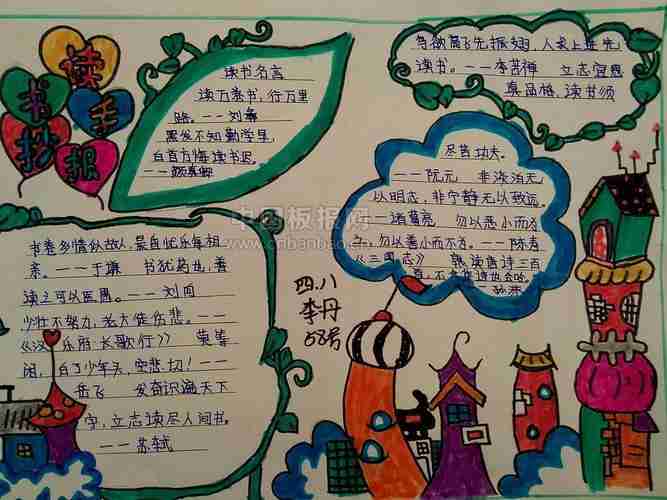 读书
手抄报
读书名言
读万卷书，行万里
路。——刘彝
黑发不知勤学早，
白首方悔读书迟。
——颜真卿
鸟欲高飞先振翅，人求上进先
读书。——李苦禅 立志宜思
真品格，读书须
尽苦功夫。
——阮元 非淡泊无
以明志，非宁静无以致远。
——诸葛亮 勿以恶小而为
之，勿以善小而不为。——陈寿
《三国志》 熟读唐诗三百
首，不会作诗也会吟。
孙洙
书卷多情似故人，晨昏忧乐每相
亲。——于谦 书犹药也，善
读之可以医愚。——刘向
少壮不努力，老大徒伤悲。——
《汉乐府·长歌行》 莫等
闲，白了少年头，空悲切！——
岳飞 发奋识遍天下
字，立志读尽人间书。
——苏轼
四.八
李丹
58号
中国板报网
www.cnbanbao.com